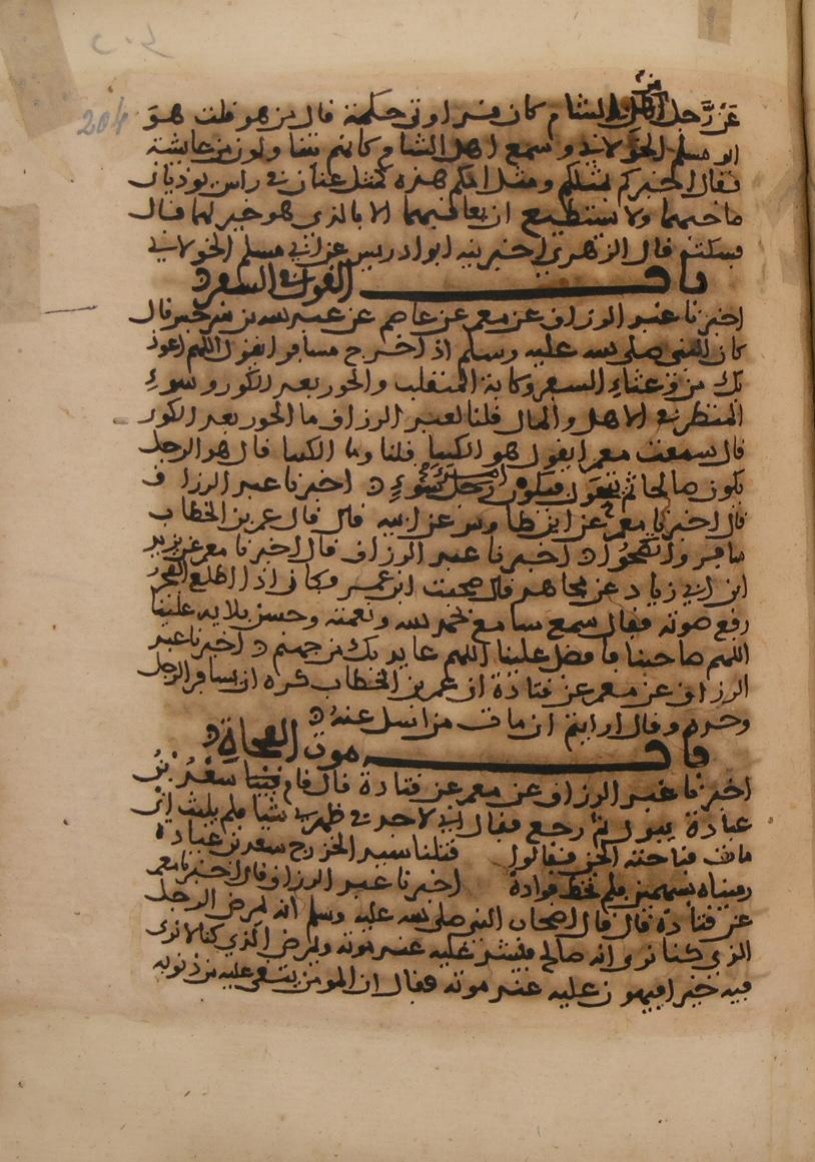 204
عن رجل من اهل الشام كان قد اوتي حكمة قال من هو قلت هو
ابو مسلم الخولاني وسمع اهل الشام كانهم ينالون من عايشة
فقال اخبركم بمثلكم ومثل امكم هذه كمثل عينان في راس يوذيان
صاحبهما ولا يستطيع ان يعاقبهما الا بالذي هو خير لهما قال
فسكت قال الزهري اخبرنيه ابو ادريس عن ابي مسلم الخولاني
باب القول في السفر
اخبرنا عبد الرزاق عن معمر عن عاصم عن عبد الله بن سرجس قال
كان النبي صلى الله عليه وسلم اذا خرج مسافرا يقول اللهم اعوذ
بك من وعثاء السفر وكابة المنقلب والحور بعد الكور وسوء
المنظر في الاهل والمال قلنا لعبد الرزاق ما الحور بعد الكور
قال سمعت معمرا يقول هو الكنتيا قلنا وما الكنتيا قال هو الرجل
يكون صالحا ثم يتحول فيكون رجل سوء اخبرنا عبد الرزاق
قال اخبرنا معمر عن ابن طاوس عن ابيه قال قال عمر بن الخطاب
سافروا تصحوا اخبرنا عبد الرزاق قال اخبرنا معمر عن يزيد
ابن ابي زياد عن مجاهد قال صحبت ابن عمر وكان اذا طلع الفجر
رفع صوته فقال سمع سامع بحمد الله ونعمته وحسن بلايه علينا
اللهم صاحبنا فافضل علينا اللهم عايد بك من جهنم اخبرنا عبد
الرزاق عن معمر عن قتادة ان عمر بن الخطاب كره ان يسافر الرجل
وحده وقال ارايتم ان مات من اسل عنه
باب موت الفجاة
اخبرنا عبد الرزاق عن معمر عن قتادة قال قام سعد بن
عبادة يبول ثم رجع فقال اني لاجد في ظهري شيا فلم يلبث ان
مات فناحته الجن فقالوا قتلنا سيد الخزرج سعد بن عبادة
رميناه بسهمين فلم نخط فواده اخبرنا عبد الرزاق قال اخبرنا معمر
عن قتادة قال قال اصحاب النبي صلى الله عليه وسلم انه يمرض الرجل
الذي كنا نرى انه صالح فيشدد عليه عند موته ويمرض الذي كنا لا نرى
فيه خيرا فيهون عليه عند موته فقال ان المومن يبقى عليه من ذنوبه